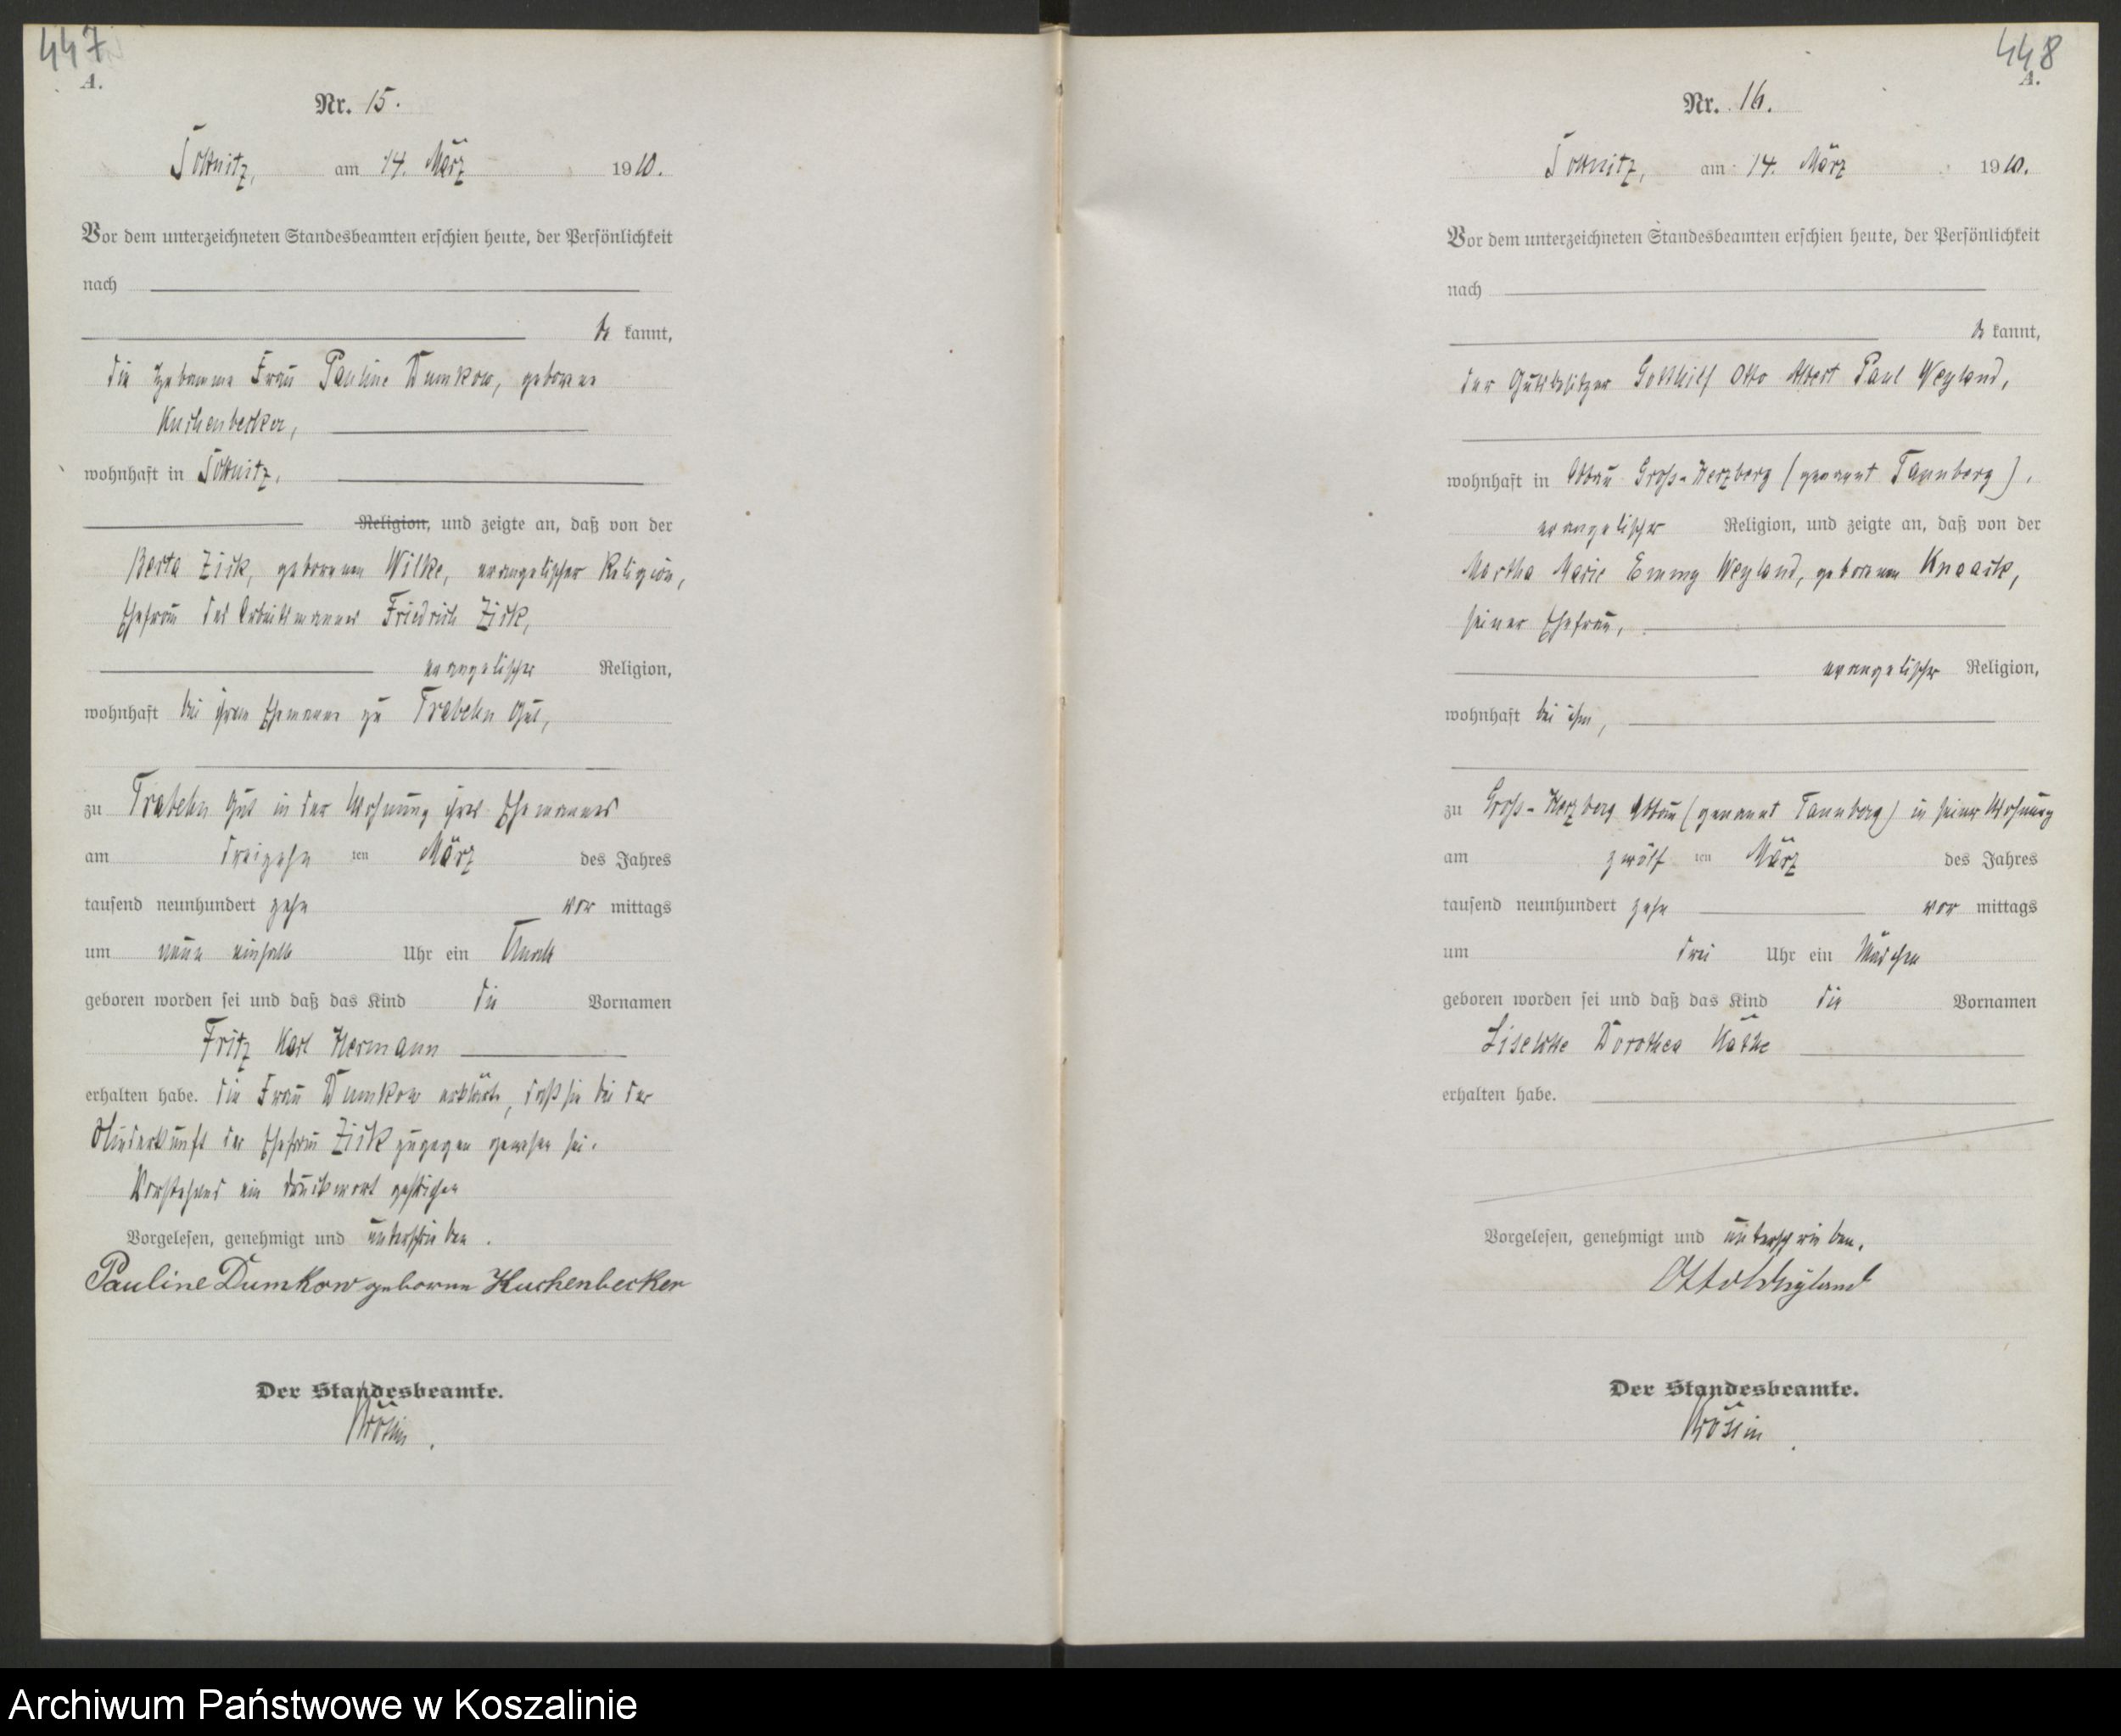 447
A.
Nr. 15.
am 14. März 1910.
Vor dem unterzeichneten Standesbeamten erschien heute, der Persönlichkeit
nach
be kannt,
die Hebamme Frau Pauline Dumkow, geborene
Kuchenbecker,
wohnhaft in
Religion, und zeigte an, daß von der
Berta Zick, geborenen Wilke, evangelischer Religion,
Ehefrau des Arbeitsmannes Friedrich Zick,
evangelischer Religion,
wohnhaft bei ihrem Ehemanne zu Trabehn Gut,
zu Trabehn Gut in der Wohnung ihres Ehemannes
am dreizehn ten März des Jahres
tausend neunhundert zehn vor mittags
um neun einhalb Uhr ein Knabe
geboren worden sei und daß das Kind die Vornamen
Fritz Karl Hermann
erhalten habe. Die Frau Dumkow erklärte, daß sie bei der
Niederkunft der Ehefrau Zick zugegen gewesen sei.
Vorstehend ein Druckwort gestrichen
Vorgelesen, genehmigt und unterschrieben.
Pauline Dumkow geborene Kuchenbecker
Der Standesbeamte.
448
A.
Nr. 16.
am 14. März 1910.
Vor dem unterzeichneten Standesbeamten erschien heute, der Persönlichkeit
nach
be kannt,
der Gutsbesitzer Gotthilf Otto Albert Paul Weyland,
wohnhaft in Abbau Groß-Herzberg (genannt Tannberg),
evangelischer Religion, und zeigte an, daß von der
Martha Marie Emmy Weyland, geborenen Knaack,
seiner Ehefrau,
evangelischer Religion,
wohnhaft bei ihm,
zu Groß-Herzberg Abbau (genannt Tannberg) in seiner Wohnung
am zwölf ten März des Jahres
tausend neunhundert zehn vor mittags
um drei Uhr ein Mädchen
geboren worden sei und daß das Kind die Vornamen
Liselotte Dorothea Käthe
erhalten habe.
Vorgelesen, genehmigt und unterschrieben.
Otto Weyland
Der Standesbeamte.
Archiwum Państwowe w Koszalinie